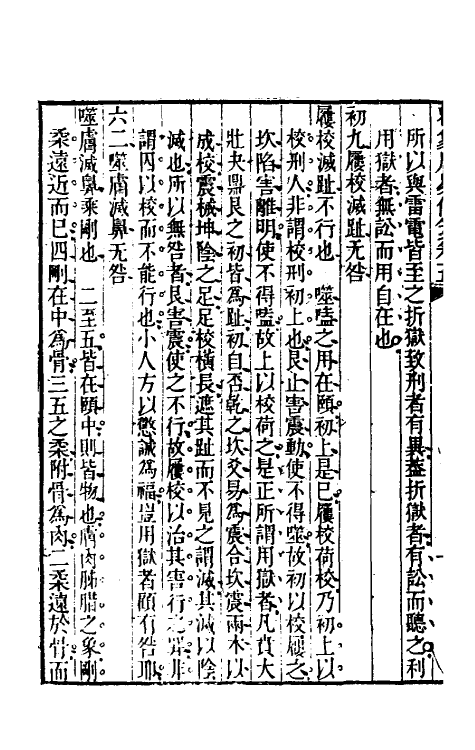 所以與雷電皆至之折獄致刑者有異蓋折獄者有訟而聽之利
用獄者無訟而用自在也
初九屨校滅趾无咎
屨校滅趾不行也　噬嗑之用在頤初上是已屨校荷校乃初上以
校刑人非謂校刑初上也艮止害震動使不得噬故初以校屨之
坎陷害離明使不得嗑故上以校荷之是正所謂用獄者凡賁大
壯夬鼎艮之初皆爲趾初自否乾之坎交易爲震合坎震兩木以
成校震械坤陰之足足校橫長遮其趾而不見之謂滅其滅以陰
滅也所以無咎者艮害震使之不行故屨校以治其害行之罪非
謂囚以校而不能行也小人方以懲誡爲福豈用獄者顧有咎耶
六二噬膚滅鼻无咎
噬膚滅鼻乘剛也　二至五皆在頤中則皆物也膚肉胏腊之象剛
柔遠近而已四剛在中爲骨三五之柔附骨爲肉二柔遠於骨而